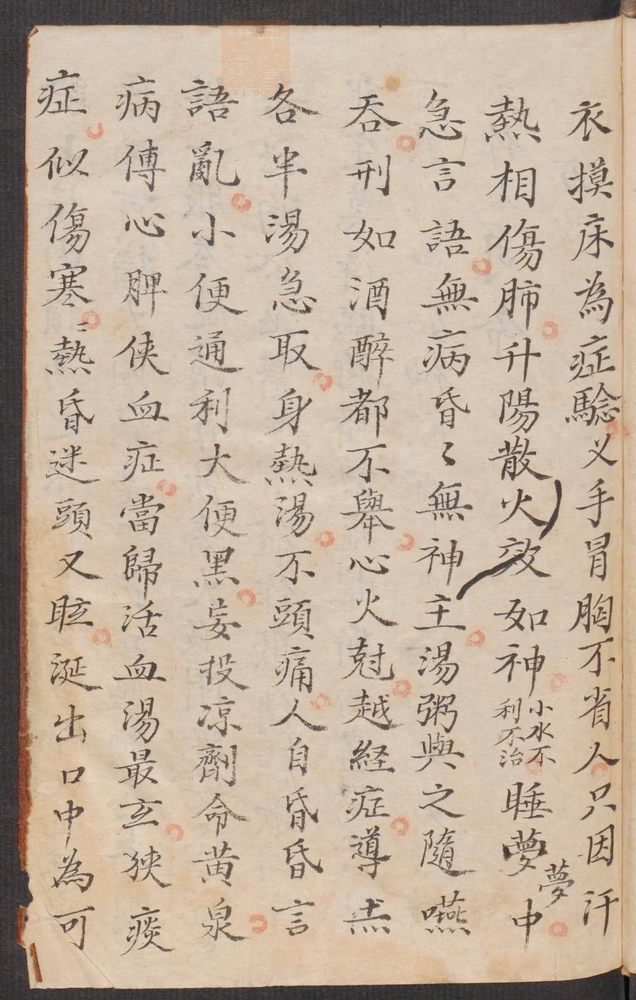 衣摸床為症驗乂手冒胸不省人只因汗
熱相傷肺升陽散火效如神小水不利不治睡夢中
夢
急言語無病昏〻無神主湯粥與之隨嚥
吞刑如酒醉都不舉心火尅越経症導赤
各半湯急取身熱湯不頭痛人自昏昏言
語亂小便通利大便黑妄投凉劑命黄泉
病傅心脾侠血症當歸活血湯最玄狹痰
症似傷寒〻熱昏迷頭又眩涎出口中為可